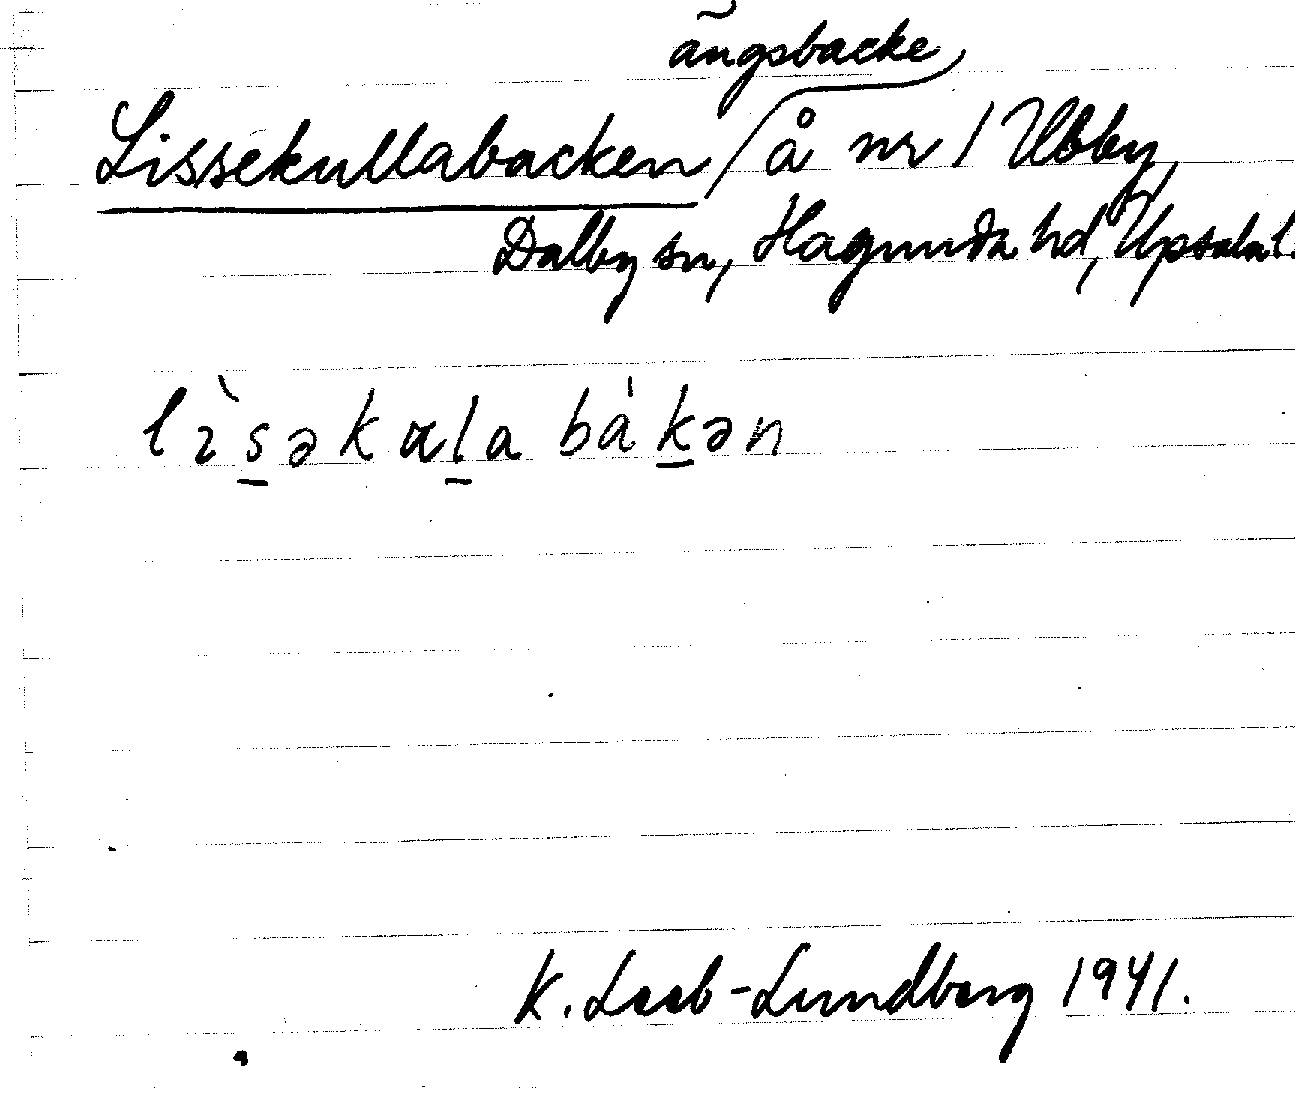 ängsbacke
Lissekullabacken / å nr 1 Ubby,
Dalby sn, Hagunda hd, Upsala l.
lìsəkala bákən
K. Leeb-Lundberg 1941.